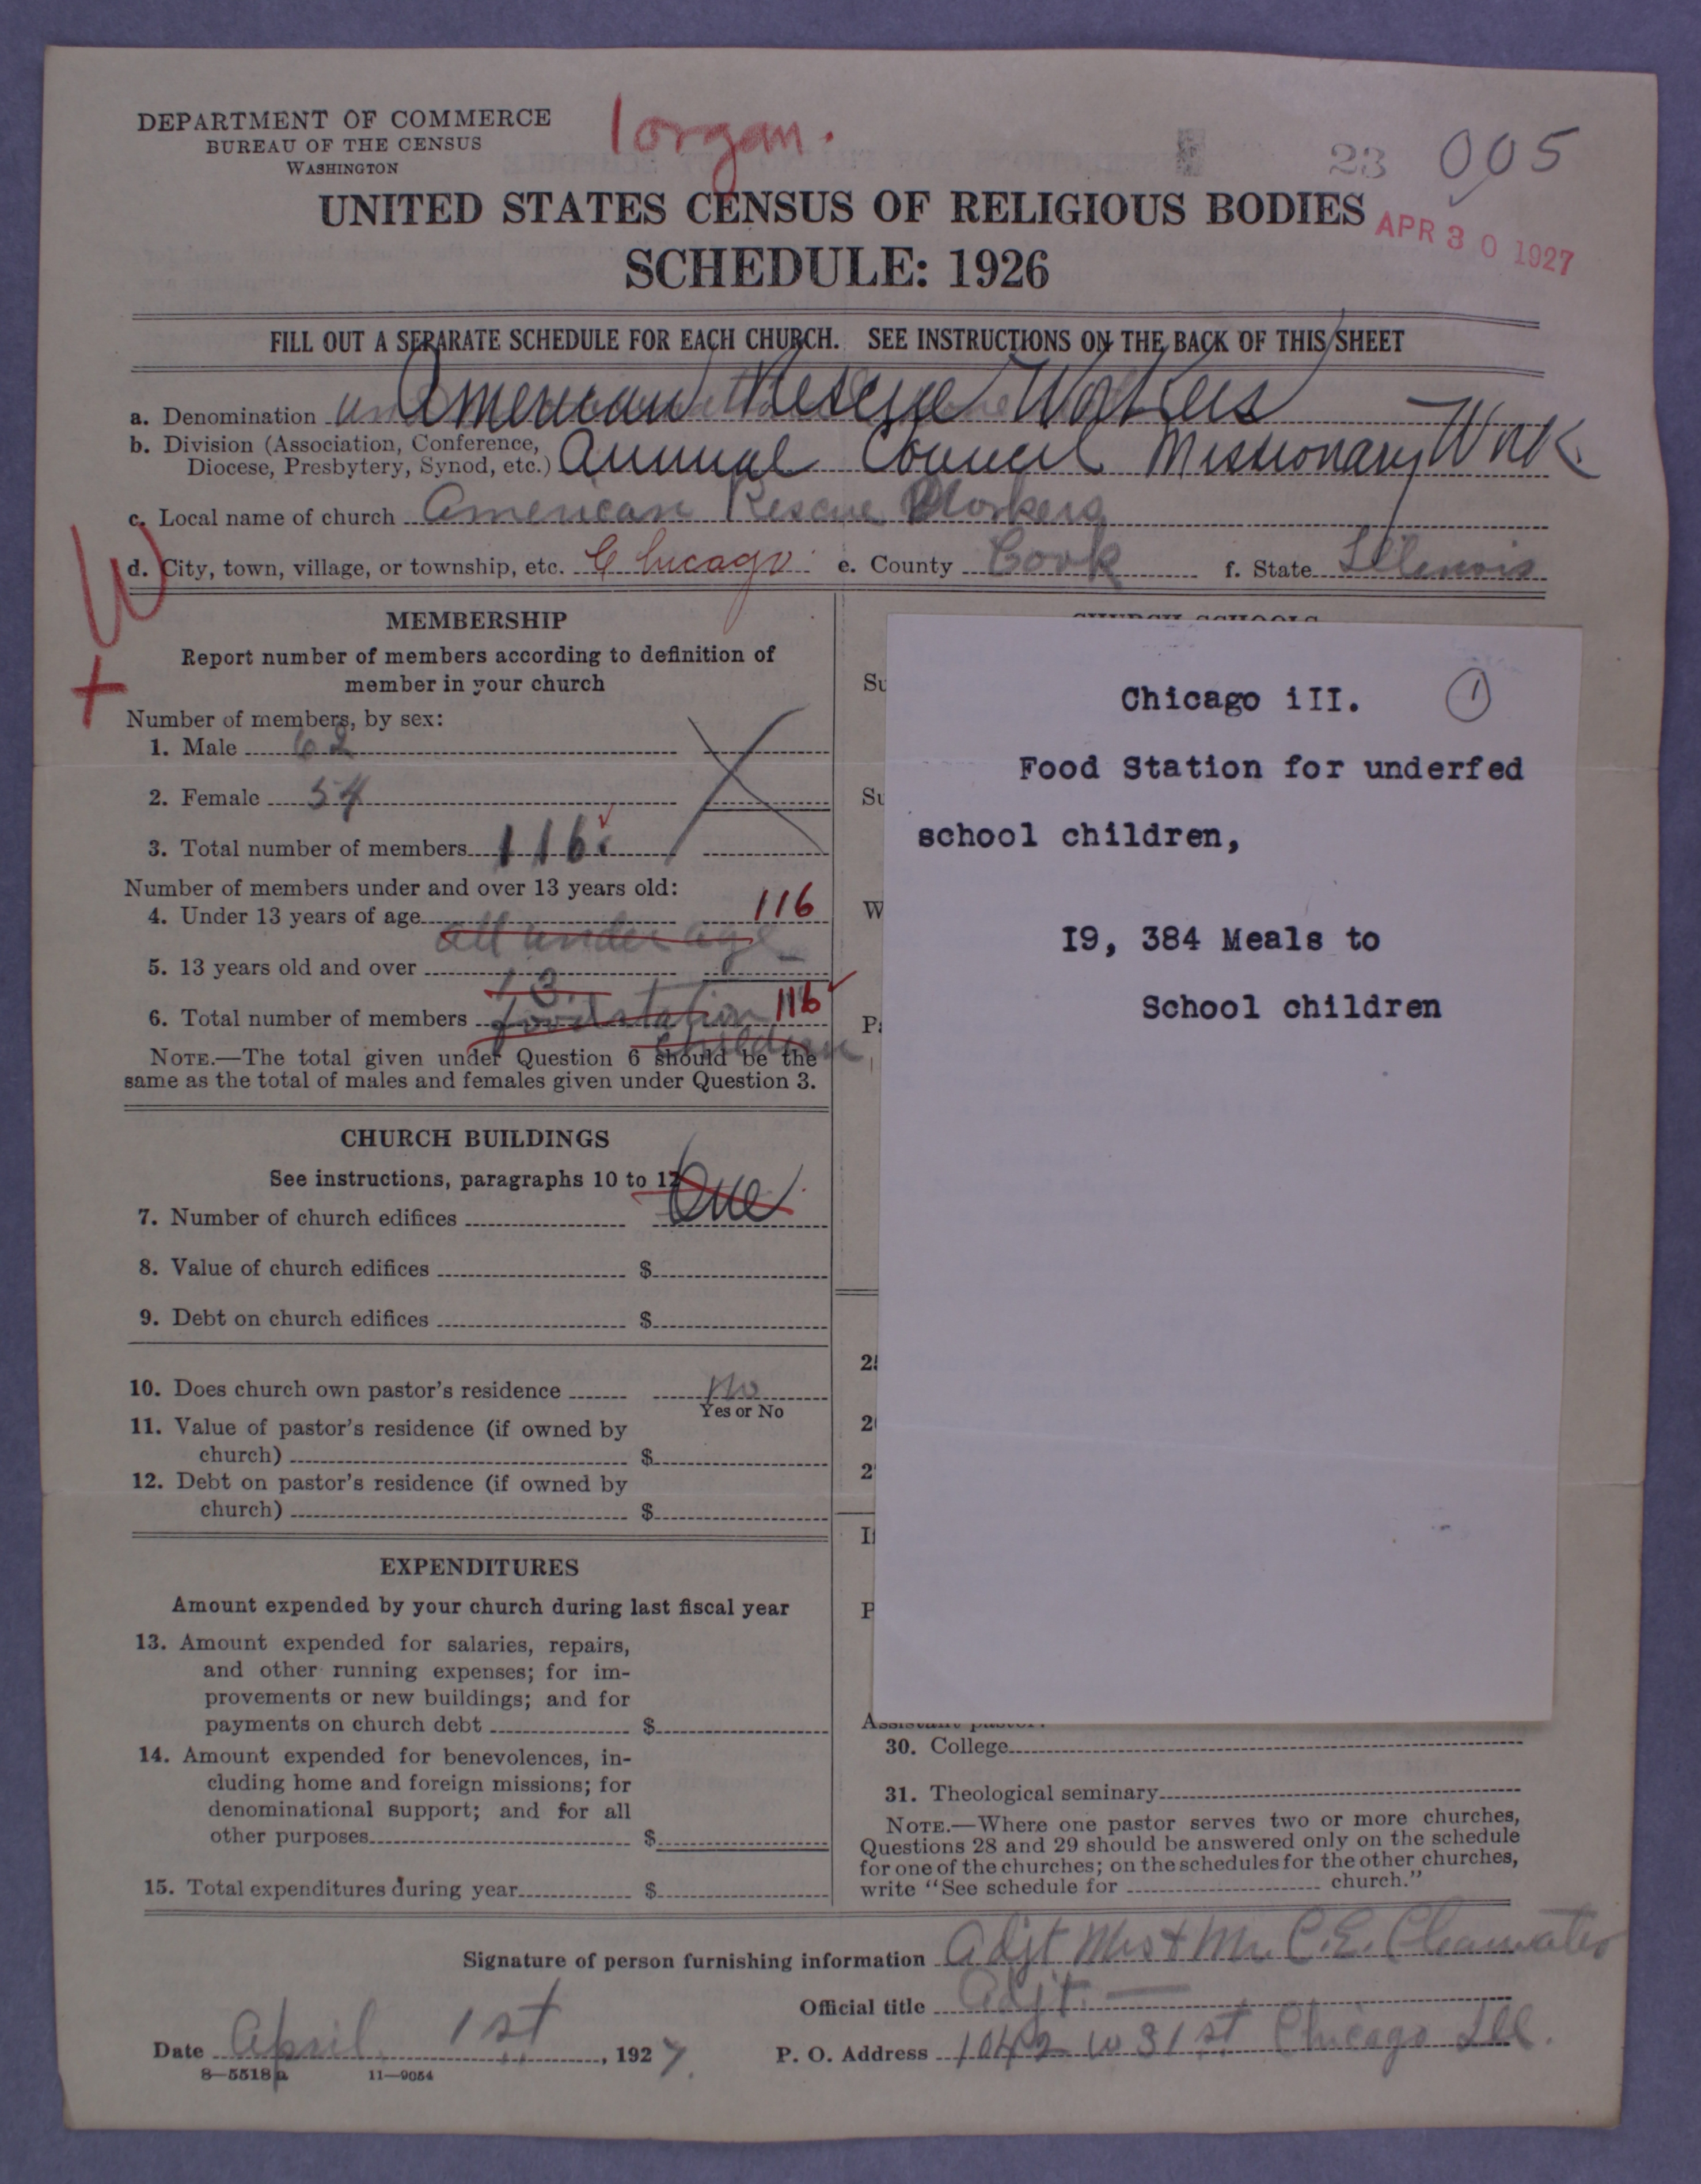 DEPARTMENT OF COMMERCE
BUREAU OF THE CENSUS
WASHINGTON
1 organ.
23 005
APR 30 1927
UNITED STATES CENSUS OF RELIGIOUS BODIES
SCHEDULE: 1926
FILL OUT A SEPARATE SCHEDULE FOR EACH CHURCH. SEE INSTRUCTIONS ON THE BACK OF THIS SHEET
a. Denomination American Rescue Workers
b. Division (Association, Conference,
Diocese, Presbytery, Synod, etc.) Annual Council Missionary Work
c. Local name of church American Rescue Workers
W
+
d. City, town, village, or township, etc. Chicago e. County Cook f. State Illinois
MEMBERSHIP
Report number of members according to definition of
member in your church
Number of members, by sex:
1. Male 62
2. Female 54
3. Total number of members 116
Number of members under and over 13 years old:
4. Under 13 years of age 116
all under age
5. 13 years old and over –
13
6. Total number of members food station 116
children
NOTE.—The total given under Question 6 should be the
same as the total of males and females given under Question 3.
CHURCH BUILDINGS
See instructions, paragraphs 10 to 12
7. Number of church edifices One
8. Value of church edifices $
9. Debt on church edifices $
10. Does church own pastor's residence No
Yes or No
11. Value of pastor's residence (if owned by
church) $
12. Debt on pastor's residence (if owned by
church) $
EXPENDITURES
Amount expended by your church during last fiscal year
13. Amount expended for salaries, repairs,
and other running expenses; for im-
provements or new buildings; and for
payments on church debt $
14. Amount expended for benevolences, in-
cluding home and foreign missions; for
denominational support; and for all
other purposes $
15. Total expenditures during year $
CHURCH SCHOOLS
Chicago iII. 1
Food Station for underfed
school children,
I9, 384 Meals to
School children
Assistant pastor:
30. College
31. Theological seminary
NOTE.—Where one pastor serves two or more churches,
Questions 28 and 29 should be answered only on the schedule
for one of the churches; on the schedules for the other churches,
write "See schedule for church."
Signature of person furnishing information Adjt Mrs & Mr. C.E. Clearwater
Official title Adjt. —
Date April 1st, 1927. P. O. Address 1042 W 31st Chicago Ill.
8—5518a 11—9054